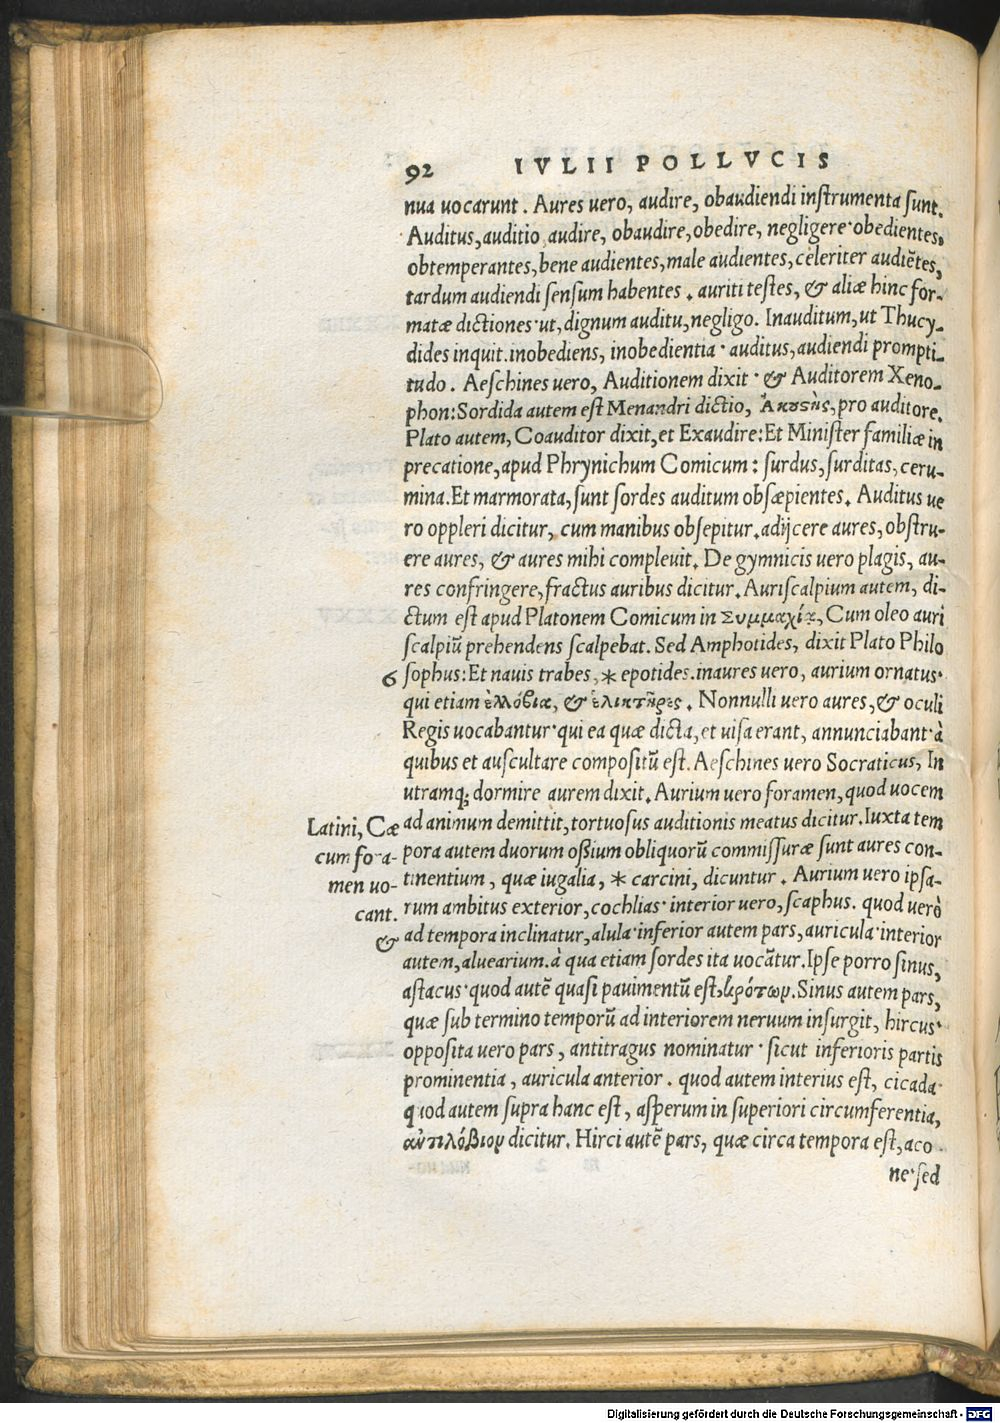 92 IVLII POLLVCIS
nua uocarunt. Aures uero, audire, obaudiendi instrumenta sunt.
Auditus, auditio audire, obaudire, obedire, negligere· obedientes,
obtemperantes, bene audientes, male audientes, celeriter audiẽtes,
tardum audiendi sensum habentes. auriti testes, & aliæ hinc for-
matæ dictiones· ut, dignum auditu, negligo. Inauditum, ut Thucy-
dides inquit. inobediens, inobedientia· auditus, audiendi prompti-
tudo. Aeschines uero, Auditionem dixit· & Auditorem Xeno-
phon: Sordida autem est Menandri dictio, Ἀκουστὴς, pro auditore.
Plato autem, Coauditor dixit, et Exaudire: Et Minister familiæ in
precatione, apud Phrynichum Comicum: surdus, surditas, ceru-
mina. Et marmorata, sunt sordes auditum obsæpientes. Auditus ue
ro oppleri dicitur, cum manibus obsepitur. adijcere aures, obstru-
ere aures, & aures mihi compleuit. De gymnicis uero plagis, au-
res confringere, fractus auribus dicitur. Auriscalpium autem, di-
ctum est apud Platonem Comicum in Συμμαχίᾳ, Cum oleo auri
scalpiũ prehendens scalpebat. Sed Amphotides, dixit Plato Philo
6 sophus: Et nauis trabes, * epotides. inaures uero, aurium ornatus·
qui etiam ἐλλόβια, & ἑλικτῆρες. Nonnulli uero aures, & oculi
Regis uocabantur· qui ea quæ dicta, et uisa erant, annunciabant· à
quibus et auscultare compositũ est. Aeschines uero Socraticus, In
utramq; dormire aurem dixit. Aurium uero foramen, quod uocem
Latini, Cæ ad animum demittit, tortuosus auditionis meatus dicitur. Iuxta tem
cum fora- pora autem duorum ossium obliquorũ commissuræ sunt aures con-
men uo- tinentium, quæ iugalia, * carcini, dicuntur. Aurium uero ipsa-
cant. rum ambitus exterior, cochlias· interior uero, scaphus. quod uerò
& ad tempora inclinatur, alula· inferior autem pars, auricula· interior
autem, aluearium. à qua etiam sordes ita uocãtur. Ipse porro sinus,
astacus· quod autẽ quasi pauimentũ est, κρότων. Sinus autem pars,
quæ sub termino temporũ ad interiorem neruum insurgit, hircus·
opposita uero pars, antitragus nominatur· sicut inferioris partis
prominentia, auricula anterior. quod autem interius est, cicada·
quod autem supra hanc est, asperum in superiori circumferentia,
ἀντιλόβιον dicitur. Hirci autẽ pars, quæ circa tempora est, aco-
ne· sed
Digitalisierung gefördert durch die Deutsche Forschungsgemeinschaft - DFG